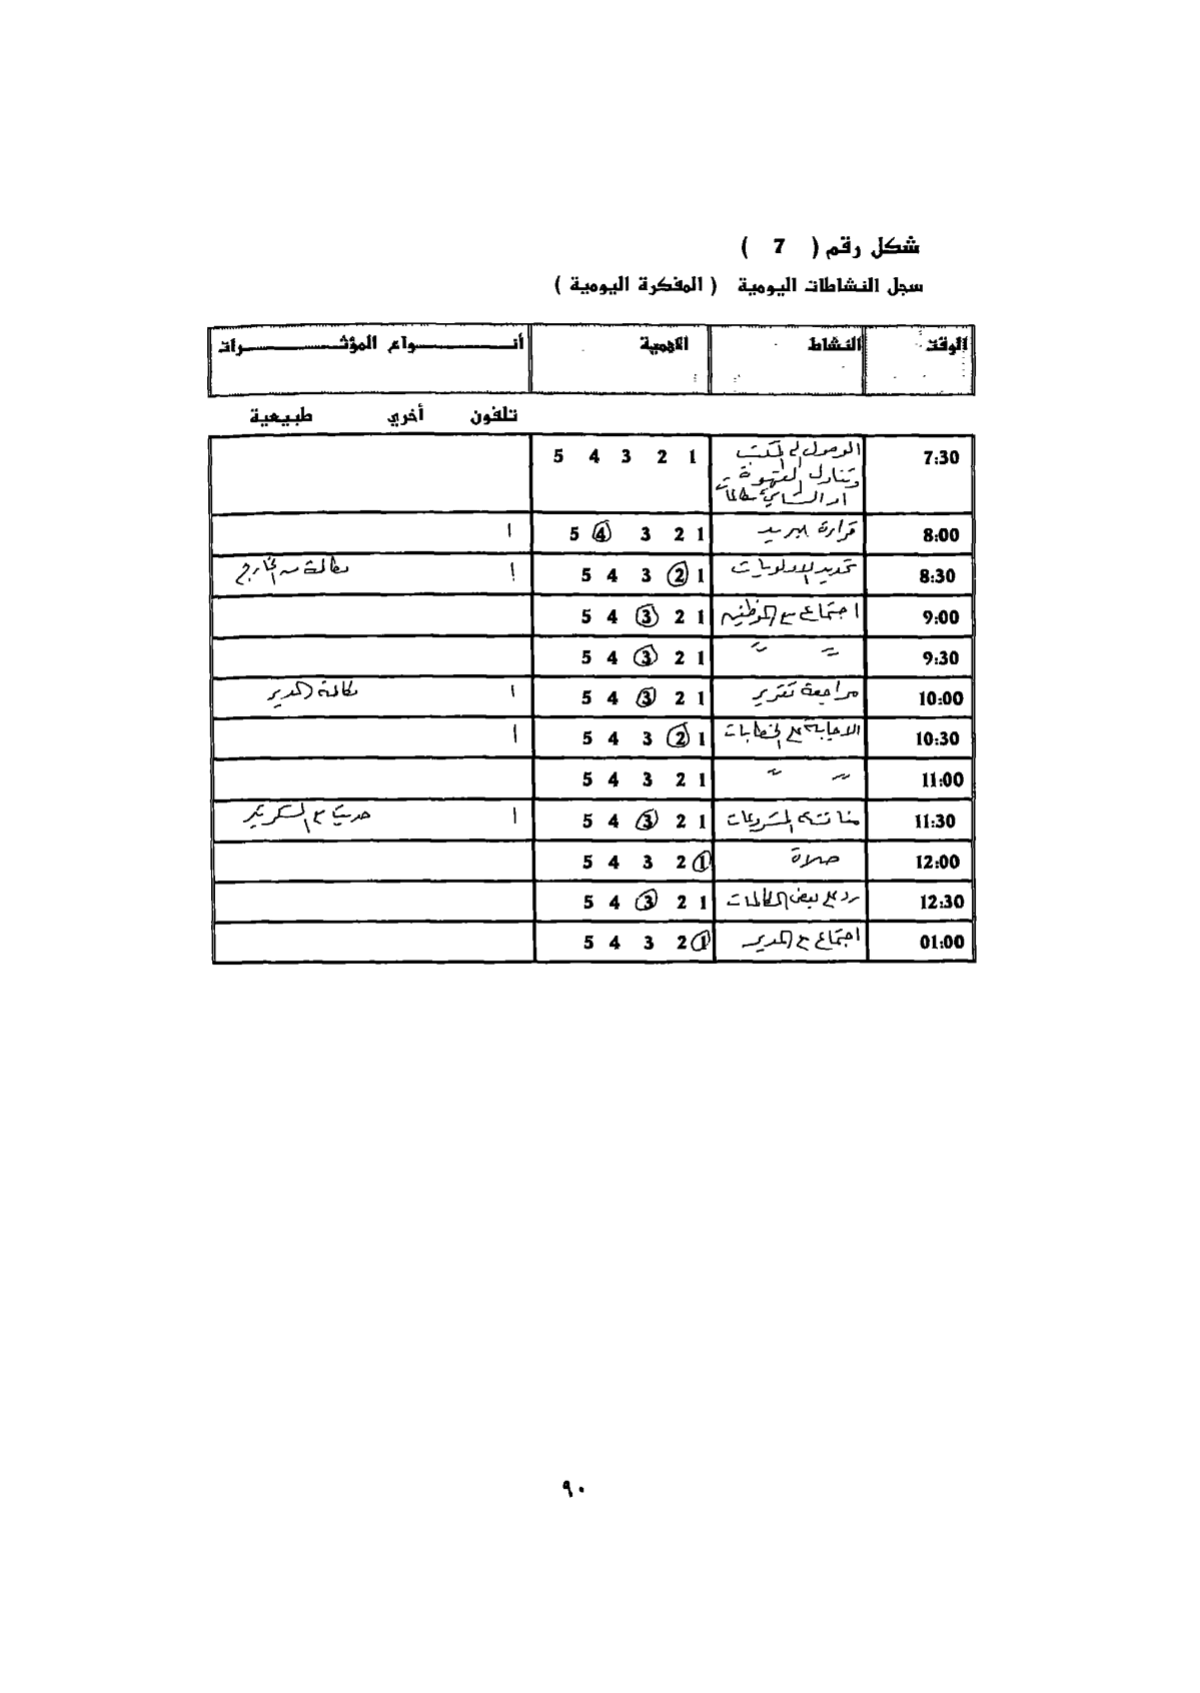 شكل رقم ( 7 )
سجل النشاطات اليومية ( المفكرة اليومية )
الوقت النشاط الاهمية أنـــواع المؤثـــرات
تلفون أخري طبيعية
7:30 الوصول الى المكتب 1 2 3 4 5
وتناول القهوة
او الشاي مكالمات
8:00 قراءة البريد 1 2 3 4 5 ا
8:30 تحديد الاولويات 1 2 3 4 5 ا مكالمة من الخارج
9:00 اجتماع مع الموظفين 1 2 3 4 5
9:30 〃 〃 1 2 3 4 5
10:00 مراجعة تقرير 1 2 3 4 5 ا مكالمة المدير
10:30 الاجابة على الخطابات 1 2 3 4 5 ا
11:00 〃 〃 1 2 3 4 5
11:30 مناقشة المشروعات 1 2 3 4 5 ا حديث مع السكرتير
12:00 صلاة 1 2 3 4 5
12:30 رد على بعض المكالمات 1 2 3 4 5
01:00 اجتماع مع المدير 1 2 3 4 5
٩٠